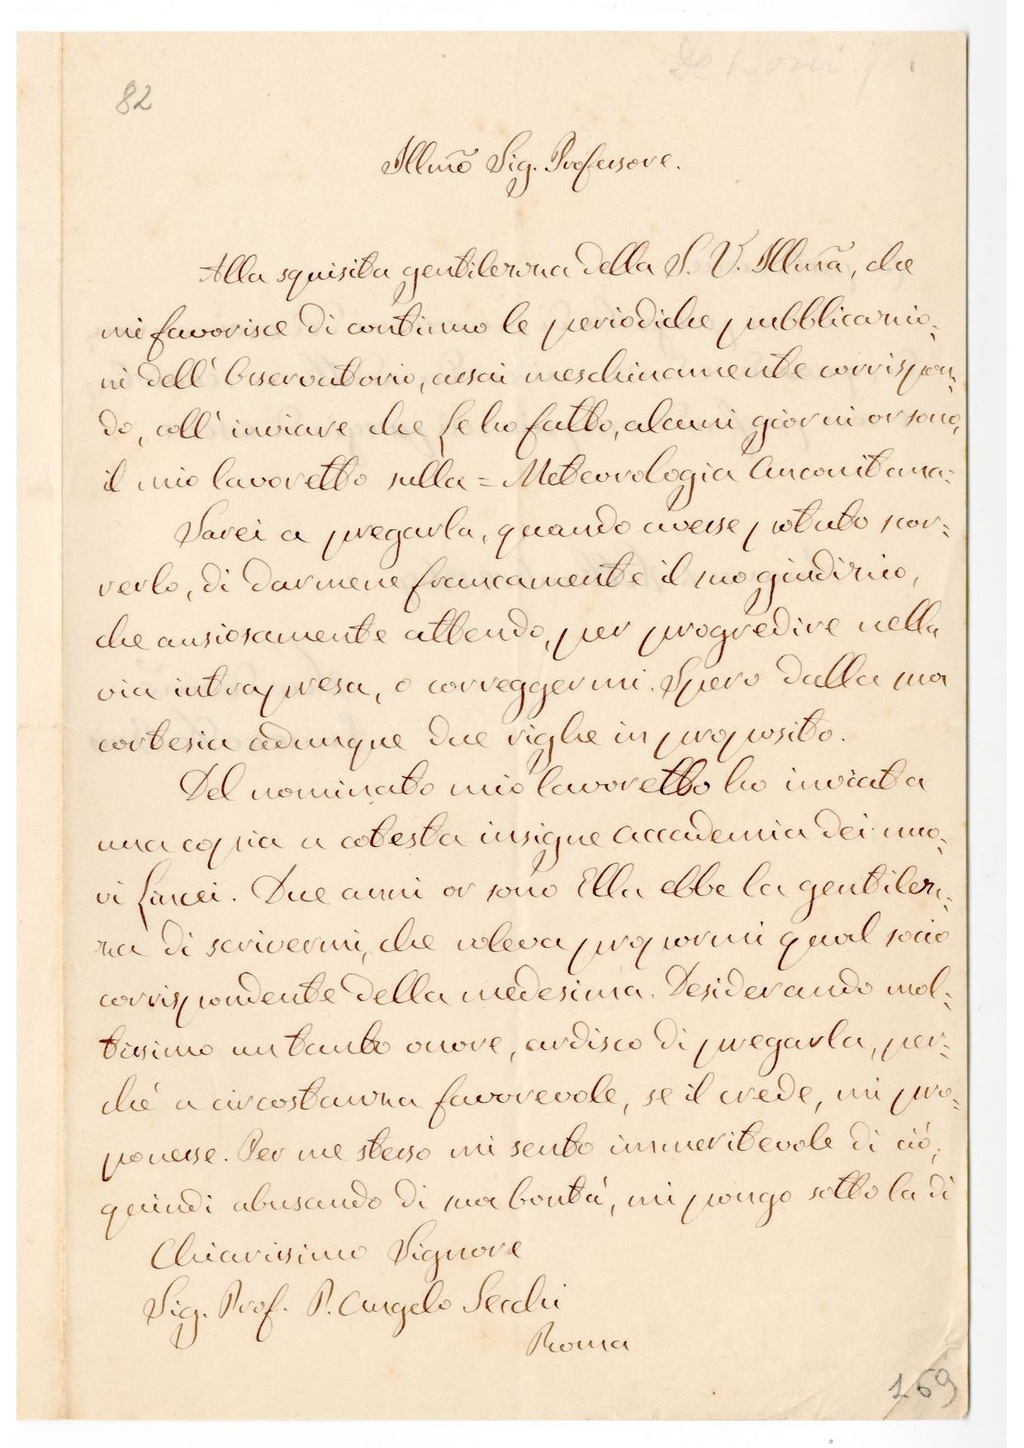 De Boni
82
Illmõ Sig. Professore.
Alla squisita gentilezza della S. V. Illmã, che
mi favorisce di continuo le periodiche pubblicazio-
ni dell' Osservatorio, assai meschinamente corrispon-
do, coll' inviare che Le ho fatto, alcuni giorni or sono,
il mio lavoretto sulla = Meteorologia Anconitana =
Sarei a pregarla, quando avesse potuto scor-
rerlo, di darmene francamente il suo giudizio,
che ansiosamente attendo, per progredire nella
via intrapresa, o correggermi. Spero dalla sua
cortesia adunque due righe in proposito.
Del nominato mio lavoretto ho inviata
una copia a cotesta insigne accademia dei nuo-
vi Lincei. Due anni or sono Ella ebbe la gentilez-
za di scrivermi, che voleva propormi qual socio
corrispondente della medesima. Desiderando mol-
tissimo un tanto onore, ardisco di pregarla, per-
ché a circostanza favorevole, se il crede, mi pro-
ponesse. Per me stesso mi sento immeritevole di ciò,
quindi abusando di sua bontà, mi pongo sotto la di
Chiarissimo Signore
Sig. Prof. P. Angelo Secchi
Roma
169